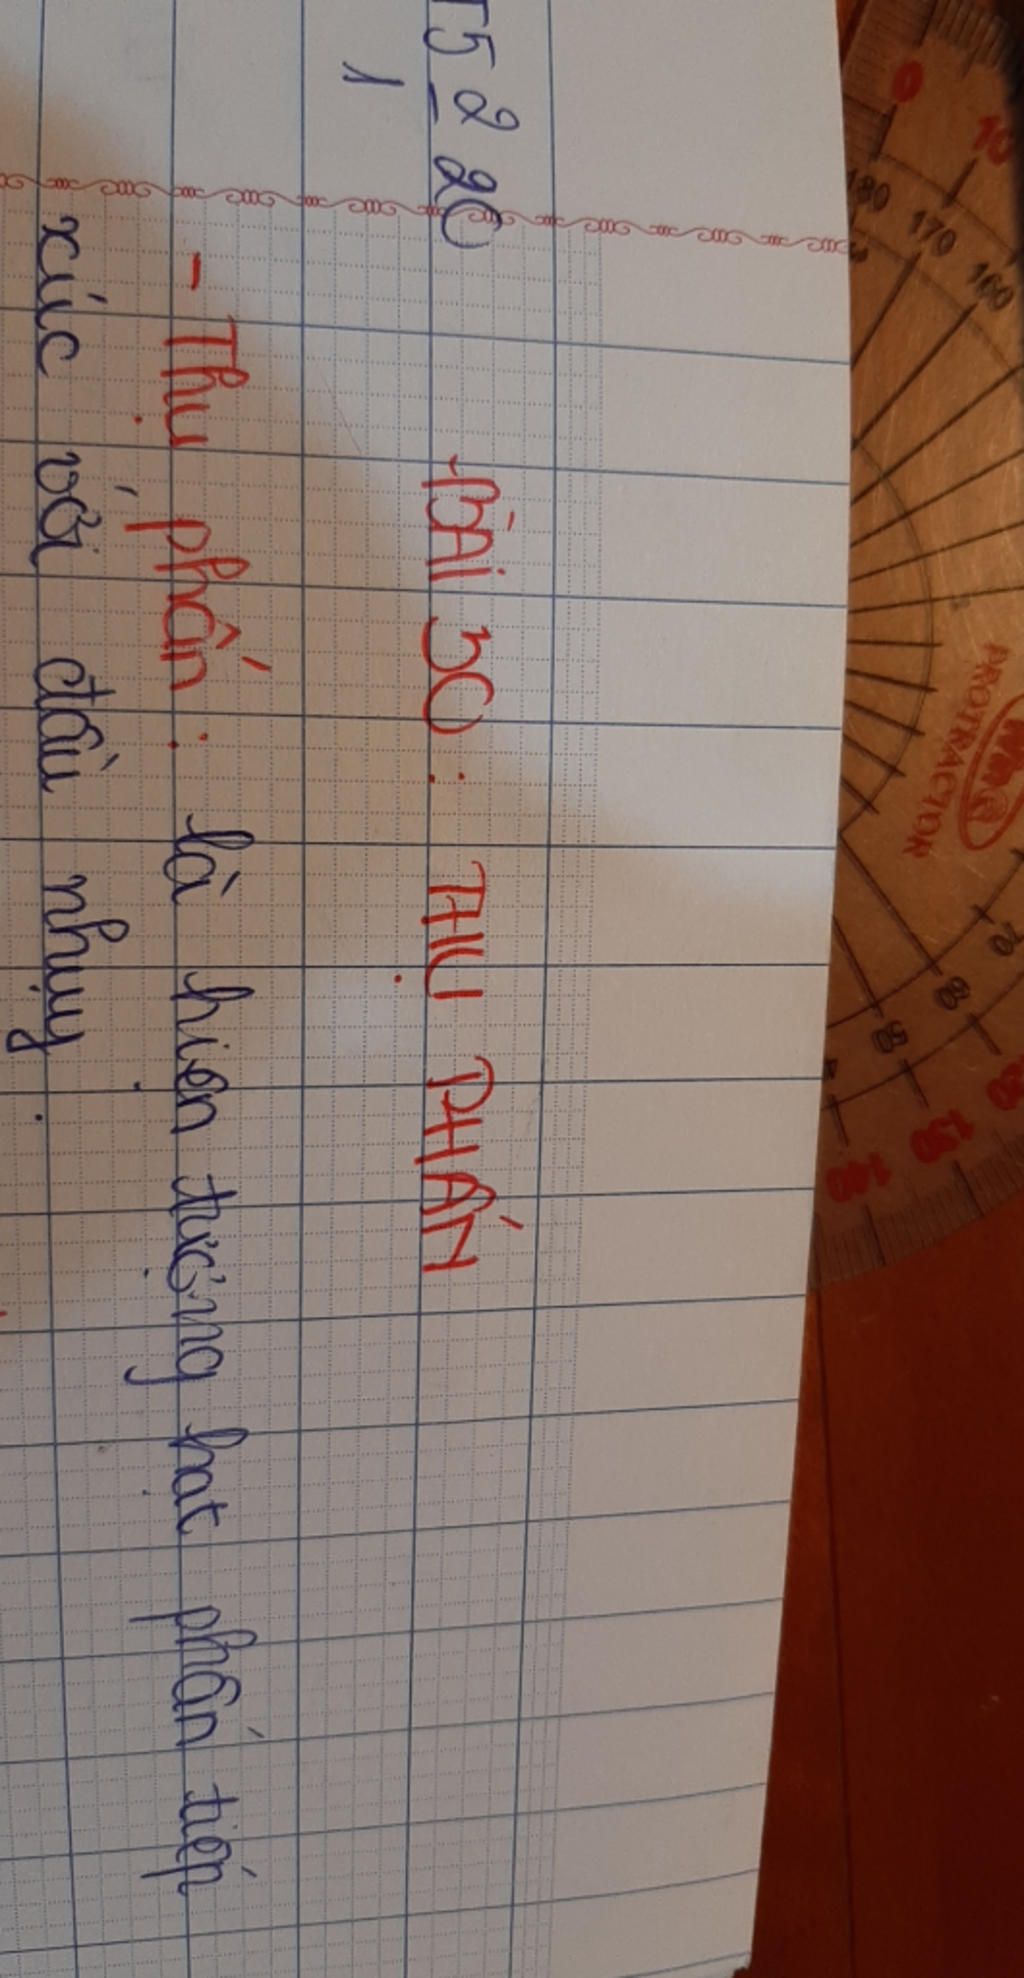 T5 2 20
1
BÀI 30: THỤ PHẤN
- Thụ phấn: là hiện tượng hạt phấn tiếp
xúc với đầu nhụy.
0 10
180 170 160
PROTRACTOR
70 60 50
130 140